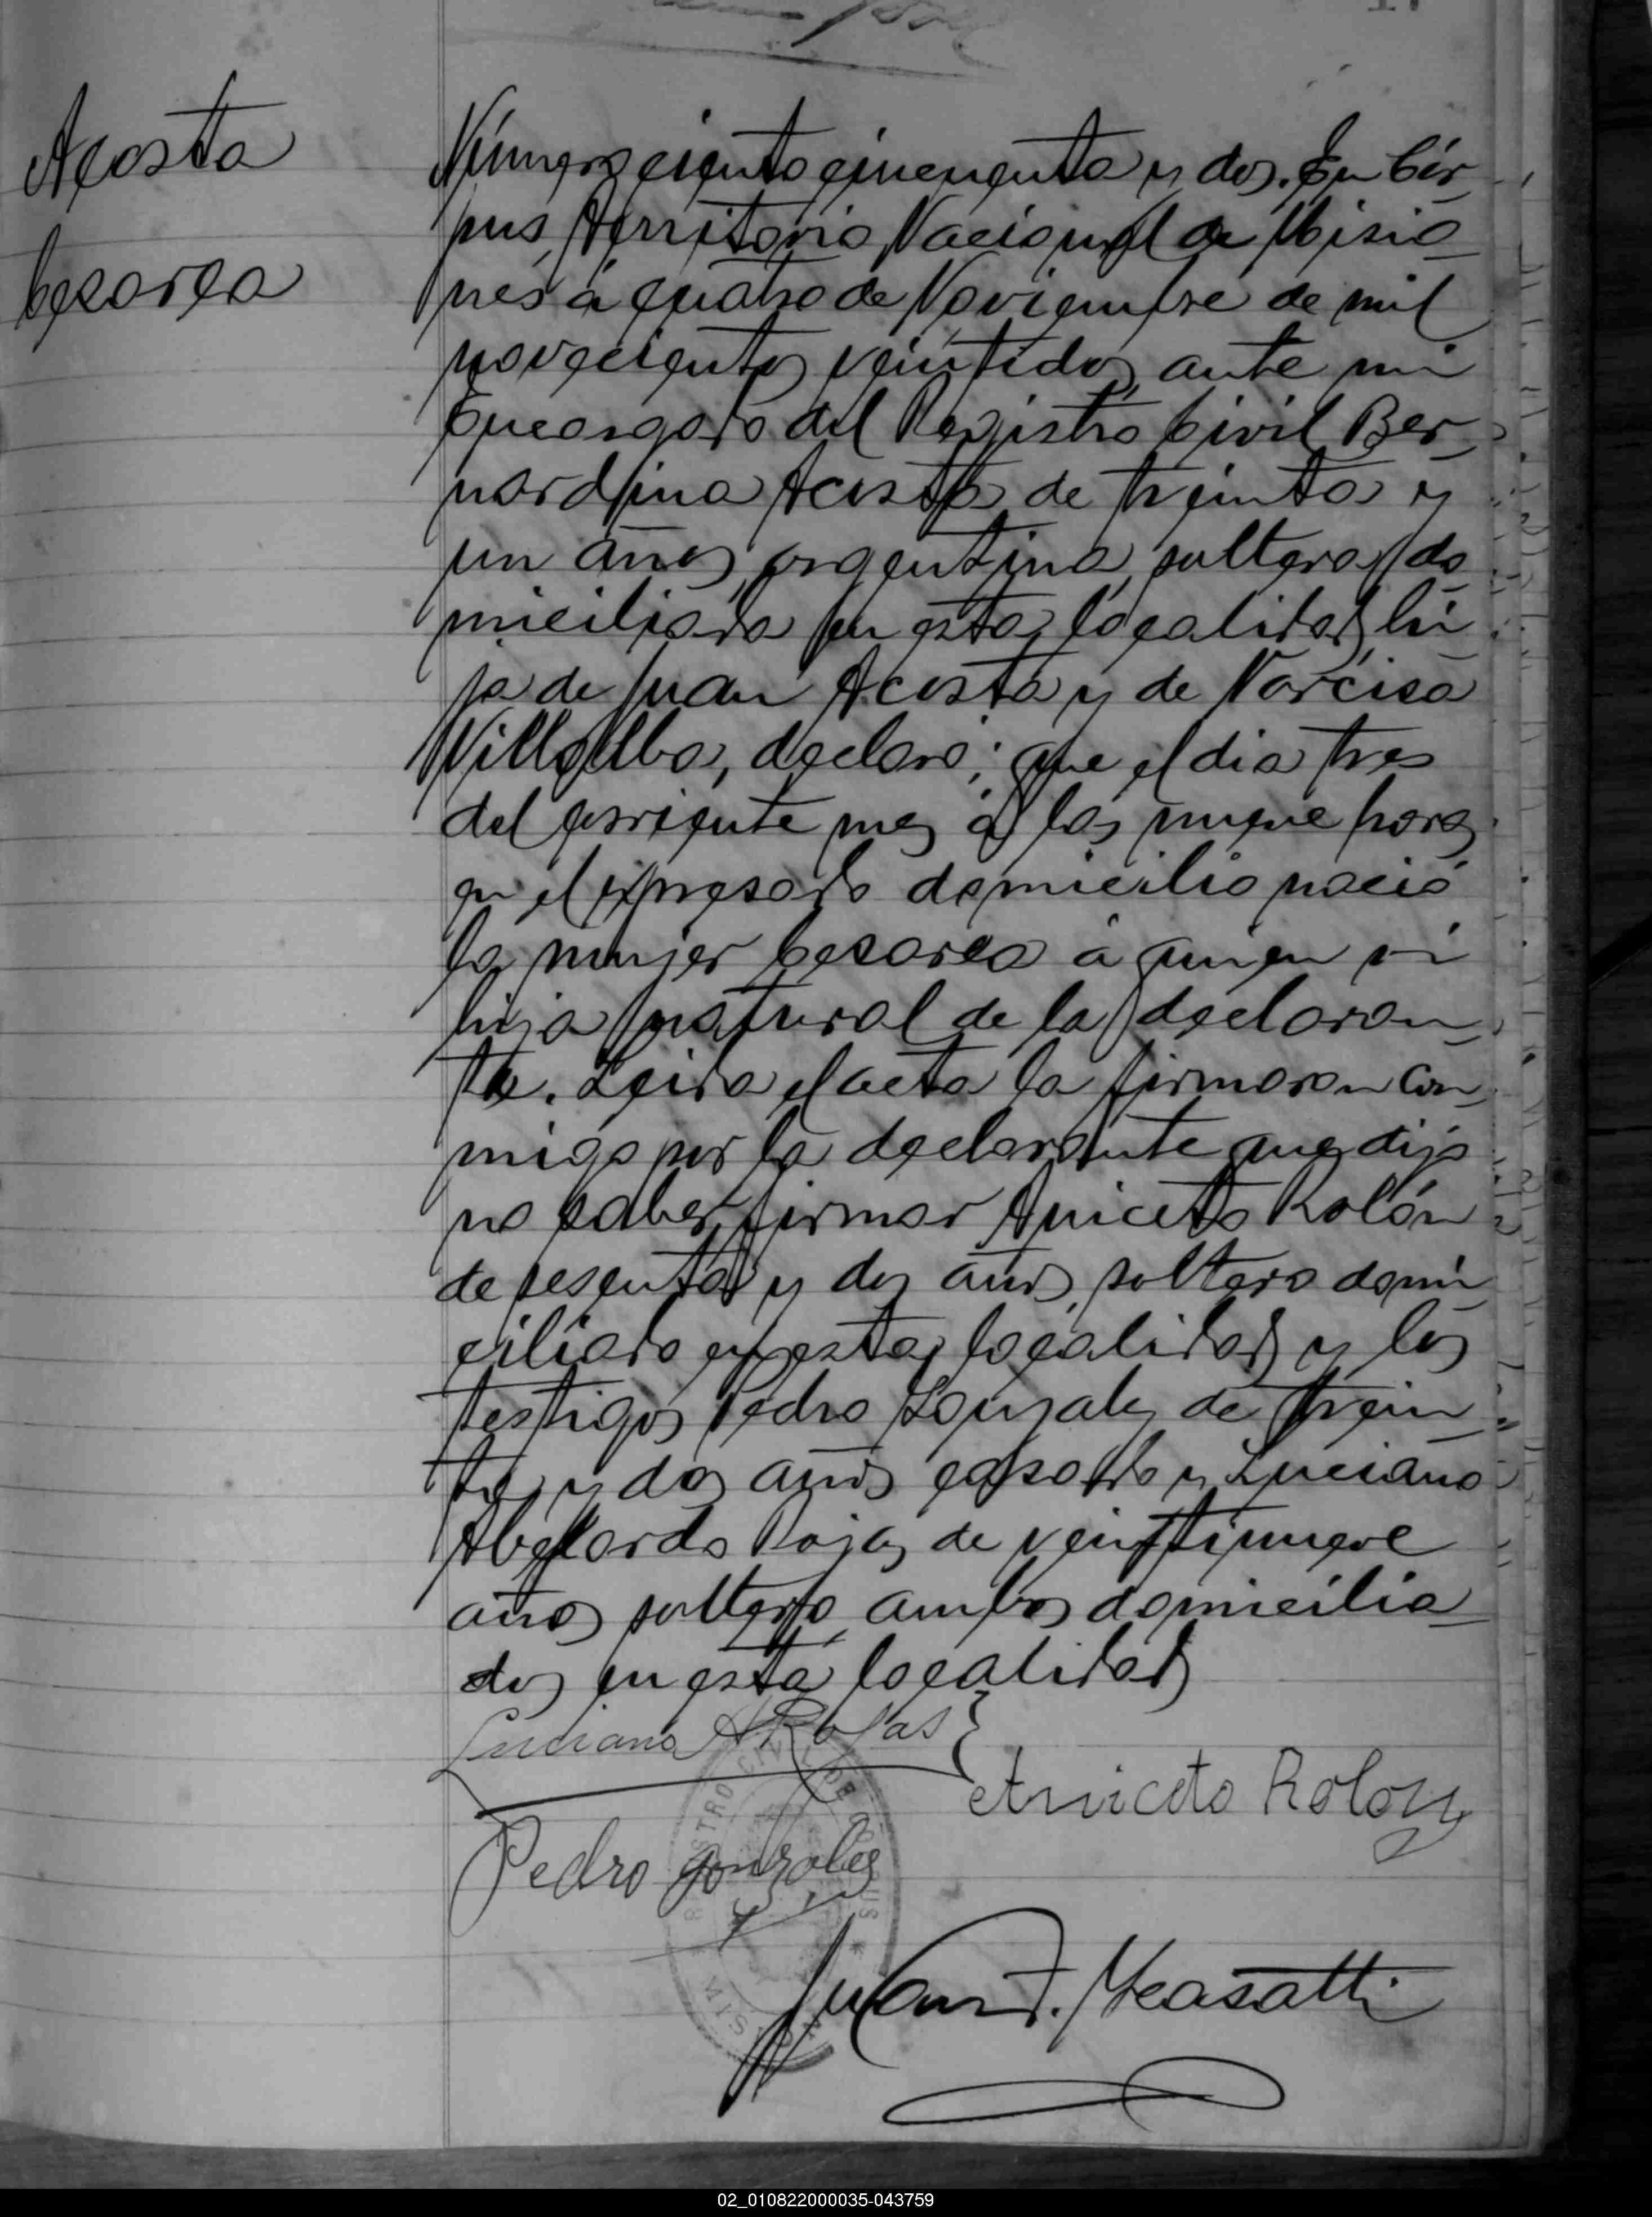 Acosta
Cesarea
Número ciento cincuenta y dos. En Cór-
pus, Territorio Nacional de Misio-
nes á cuatro de Noviembre de mil
novecientos veintidos, ante mi
Encargado del Registro Civil, Ber-
nardina Acosta de treinta y
un años, argentina, soltera, do-
miciliada en esta localidad, hi-
ja de Juan Acosta y de Narcisa
Villalba, declaró: que el dia tres
del corriente mes á las nueve horas
en el expresado domicilio nació
la mujer Cesarea á quien vi
hija natural de la declaran-
te. Leida el acta la firmaron con-
migo por la declarante que dijo
no saber firmar Aniceto Rolón
de sesenta y dos años, soltero domi-
ciliado en esta localidad y los
testigos Pedro Gonzalez de trein-
ta y dos años casado y Luciano
Abelardo Rojas de veintinueve
años soltero, ambos domicilia-
dos en esta localidad
Luciano A Rojas
Aniceto Rolon
Pedro Gonzales
Juan F.
02_010822000035-043759